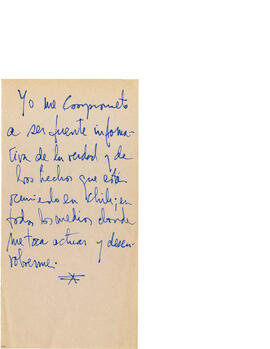 Yo me comprometo
a ser fuente informa-
tiva de la verdad y de
los hechos que está
ocurriendo en Chile; en
todos los medios donde
me toca actuar y desen-
volverme.